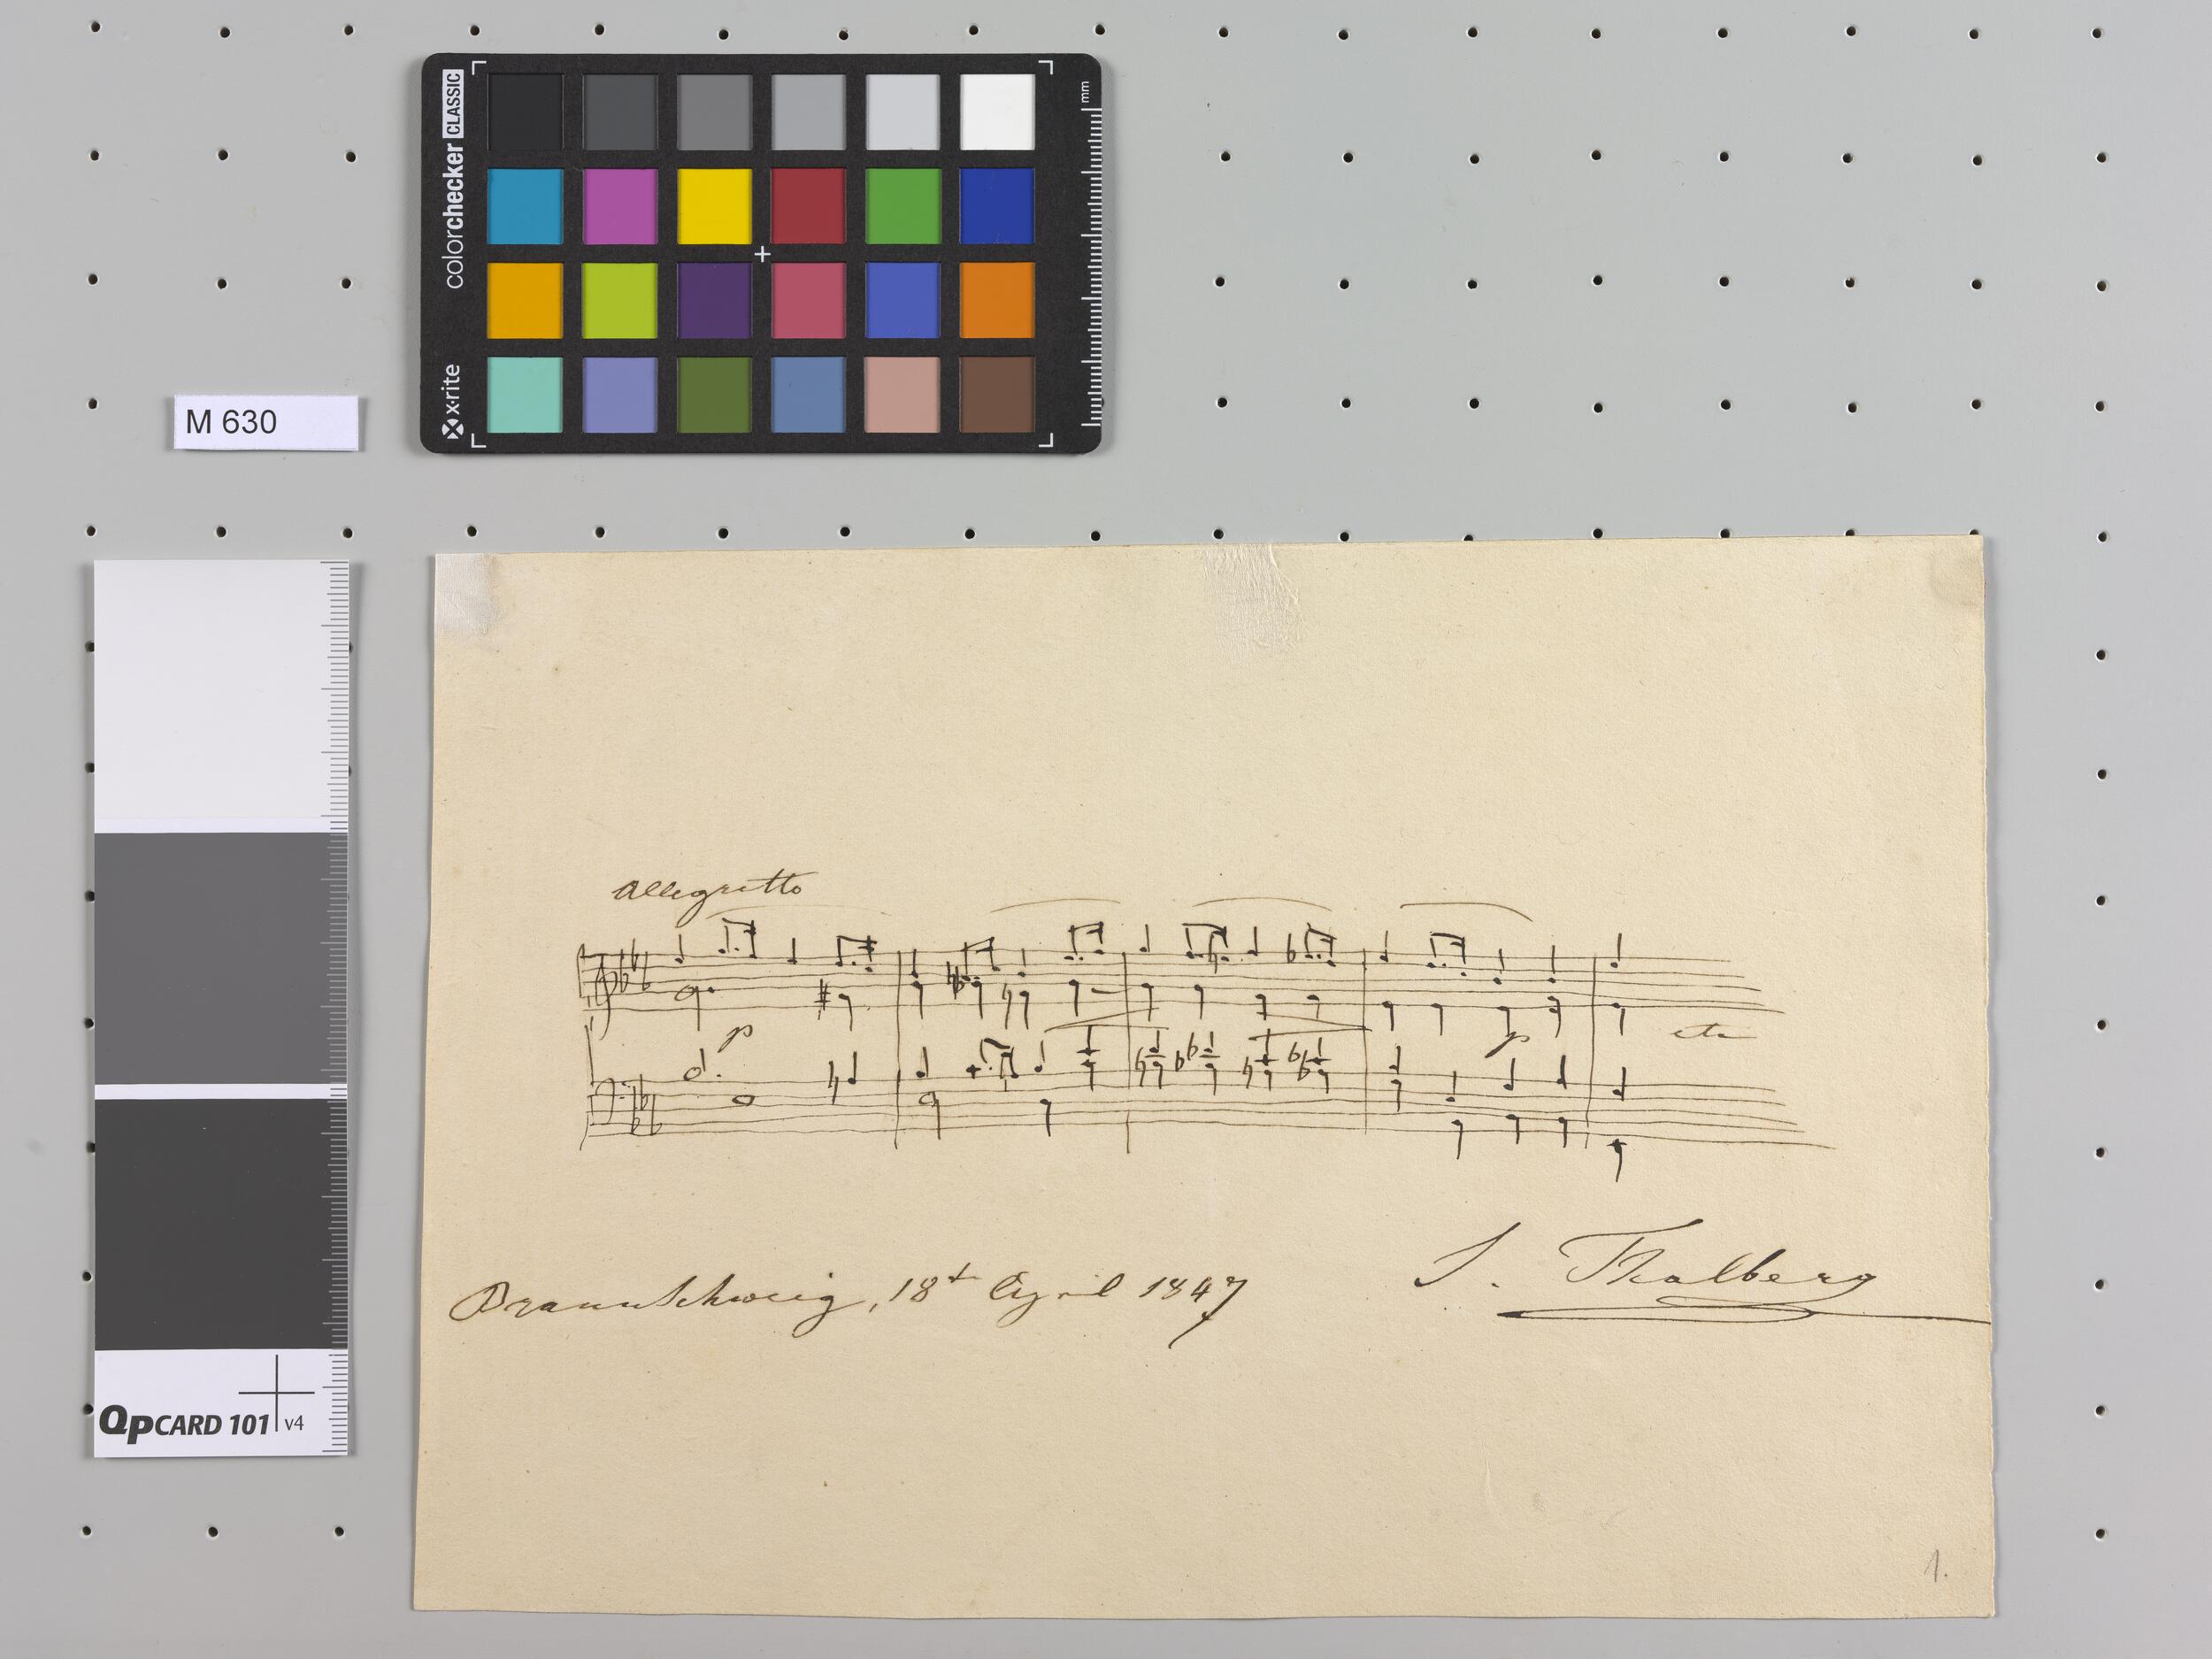 colorchecker CLASSIC
x·rite
mm
M 630
Allegretto
p
p
etc
S. Thalberg
Braunschweig, 18t April 1847
QpCARD 101 v4
1.